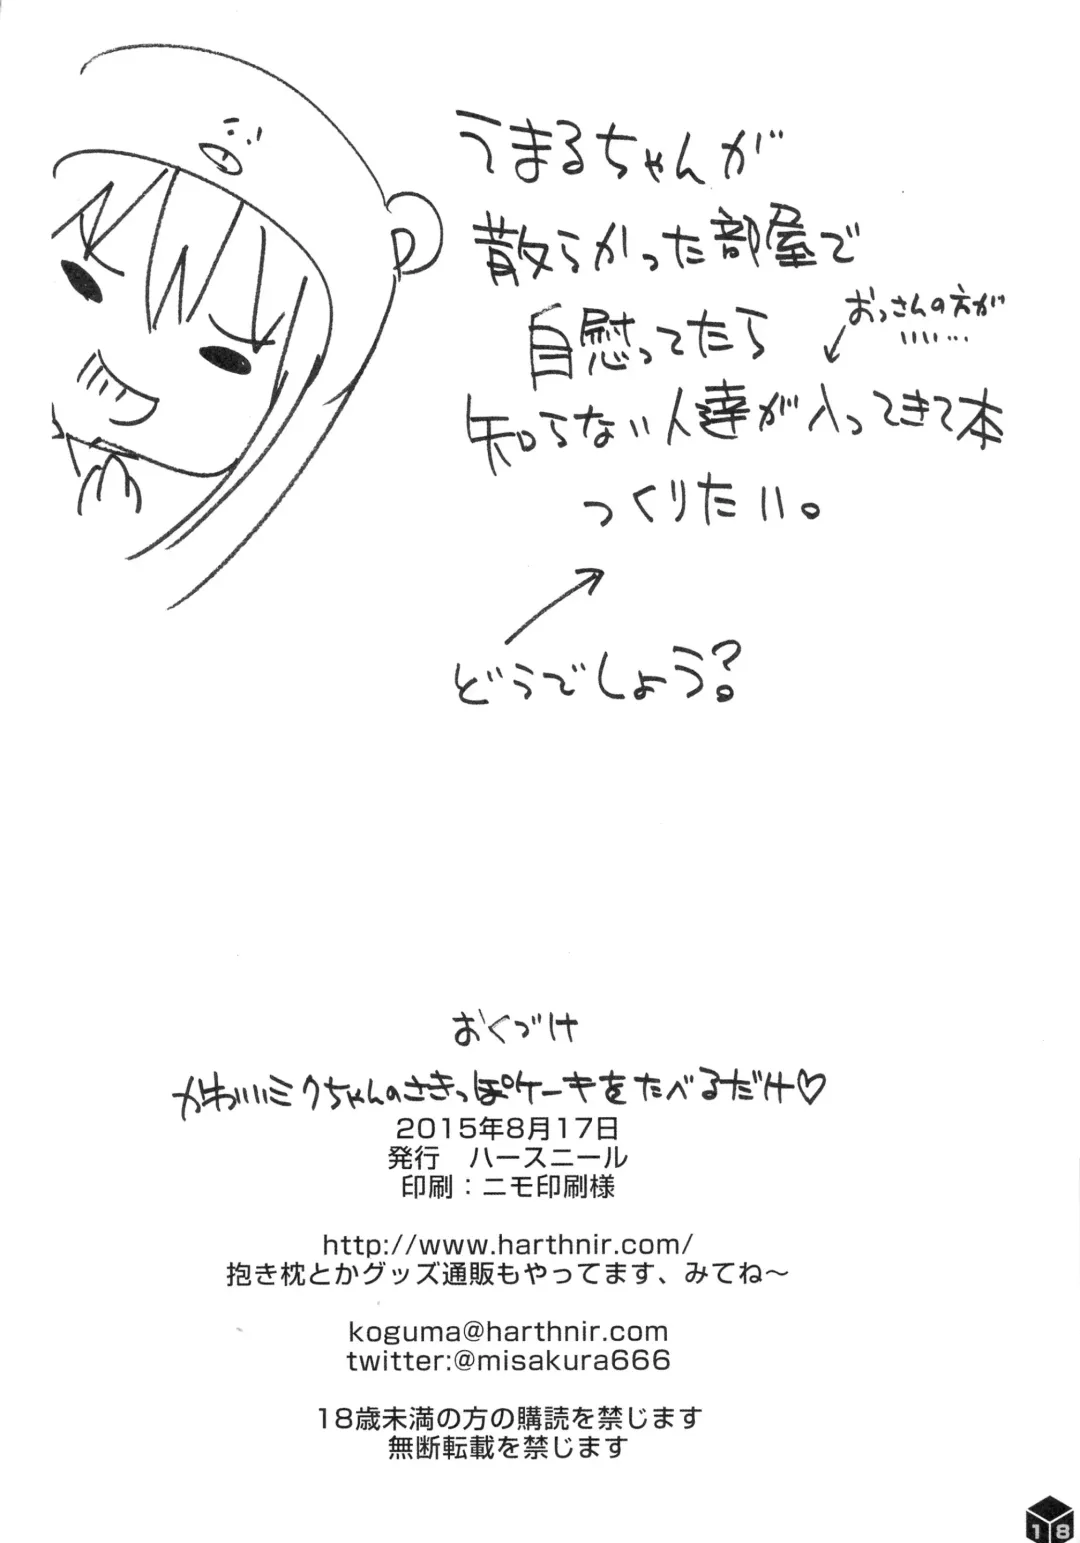 うまるちゃんが
散らかった部屋で
自慰ってたら
おっさんの方が
いい…
知らない人達が入ってきて本
つくりたい。
どうでしょう?
おくづけ
かわいいミクちゃんのさきっぽケーキをたべるだけ♡
2015年8月17日
発行　ハースニール
印刷：ニモ印刷様
http://www.harthnir.com/
抱き枕とかグッズ通販もやってます、みてね〜
koguma@harthnir.com
twitter:@misakura666
18歳未満の方の購読を禁じます
無断転載を禁じます
18